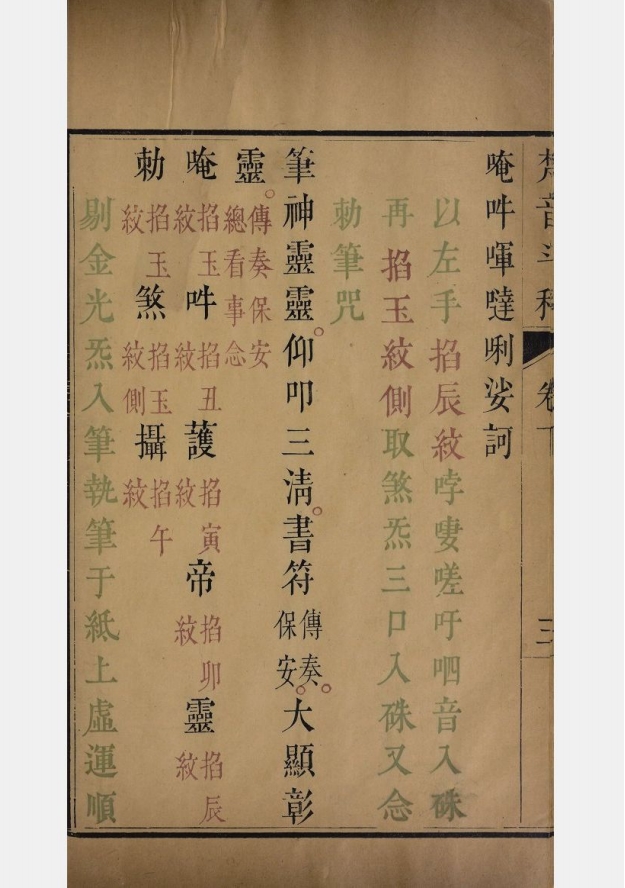 梵音斗科 卷下 三
唵吽㖇噠唎娑訶
以左手掐辰紋哱嘍嗟吁呬音入硃
再掐玉紋側取煞炁三口入硃又念
勅筆咒
筆神靈靈仰叩三淸書符傳奏保安大顯彰
靈傳奏保安總看事念
唵掐玉紋吽掐丑紋護掐寅紋帝掐卯紋靈掐辰紋
勅掐玉紋煞掐玉紋側攝掐午紋
剔金光炁入筆執筆于紙上虛運順